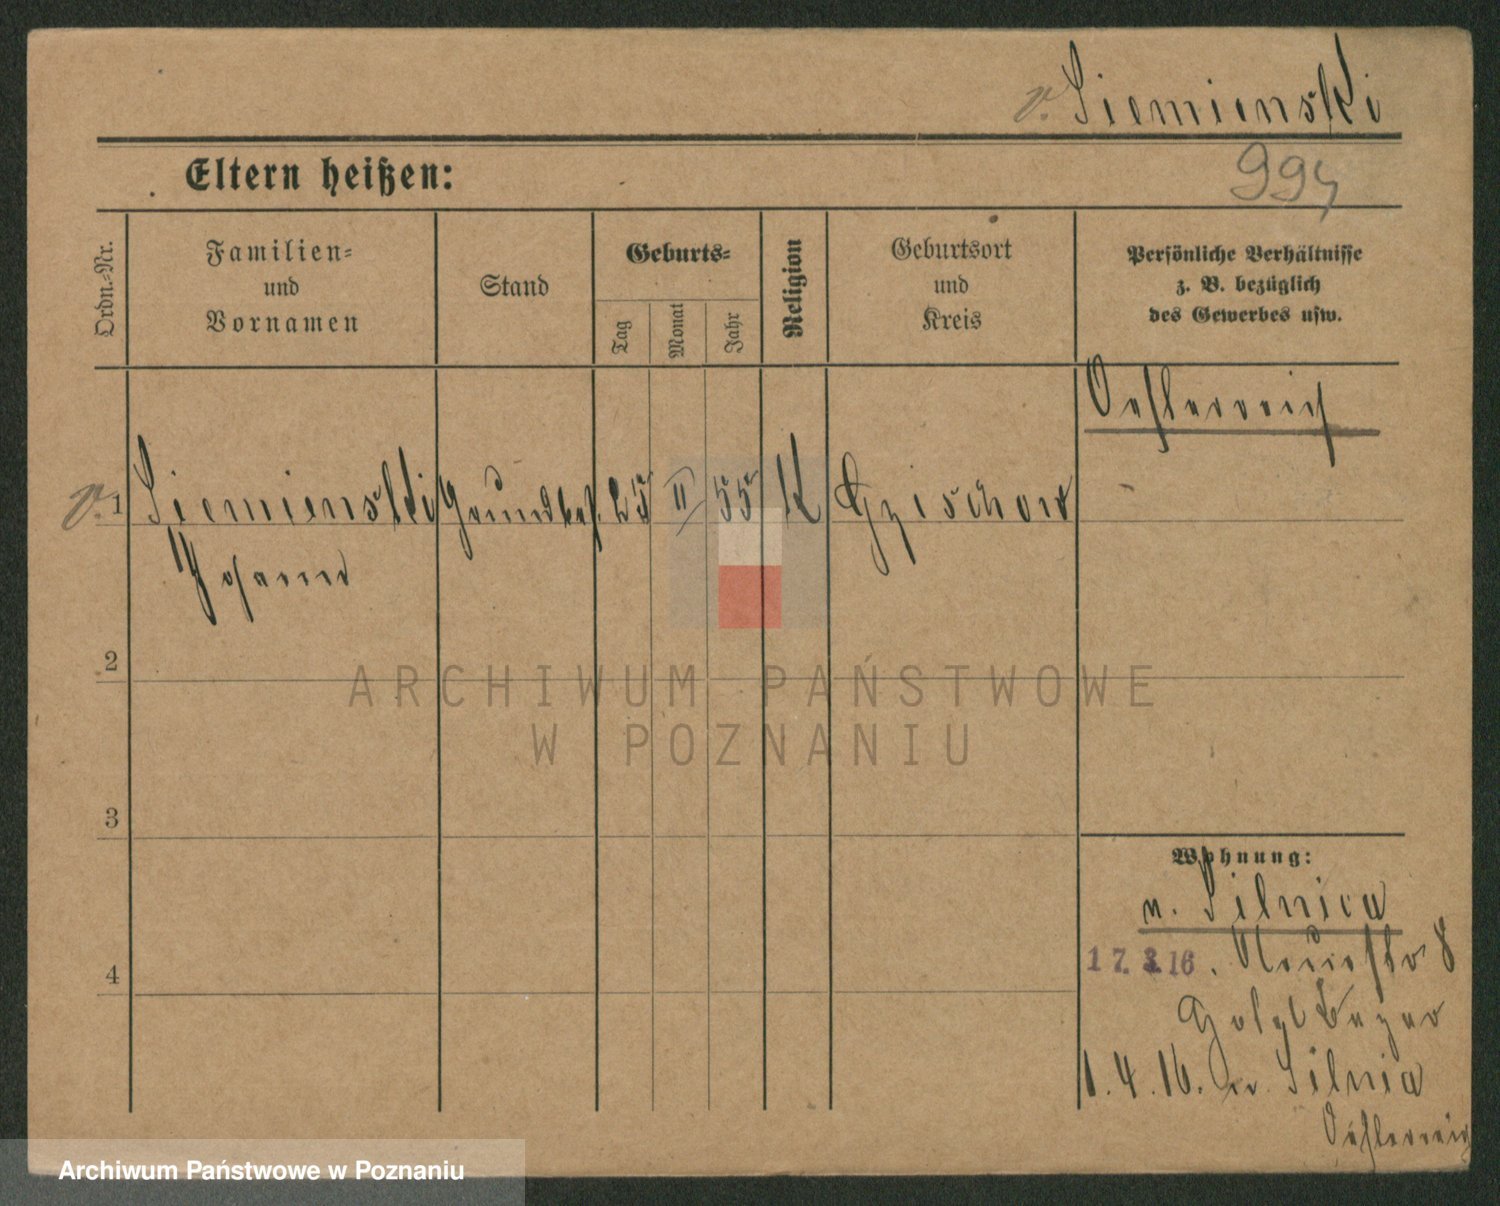 v. Siemienski
Eltern heißen:
994
Ordn.-Nr.
Familien-
und
Vornamen
Stand
Geburts-
Tag
Monat
Jahr
Religion
Geburtsort
und
Kreis
Persönliche Verhältnisse
z. B. bezüglich
des Gewerbes usw.
Oesterreich
v. 1 Siemienski Grundbes. 25 II 55 K
Johann
2
3
4
Wohnung:
n. Silnica
17. 3. 16. Neuestr 8
Hotel Bazar
1. 4. 16. n. Silnica
Oesterreich
ARCHIWUM PAŃSTWOWE
W POZNANIU
Archiwum Państwowe w Poznaniu